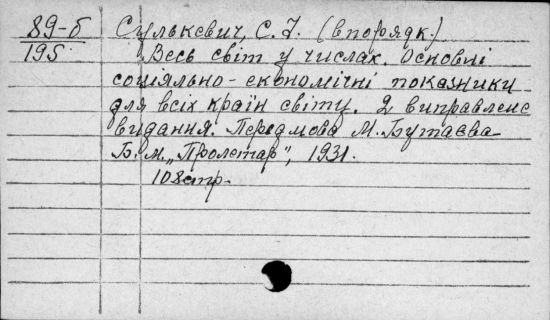 89-б Сулькевич, С. І. (впорядк.)
195 Весь світ у числах. Основні
соціяльно-економічні показники
для всіх країн світу. 2 виправлене
видання. Передмова М. Бутаєва
Б. м. „Пролетар", 1931.
108 стр.